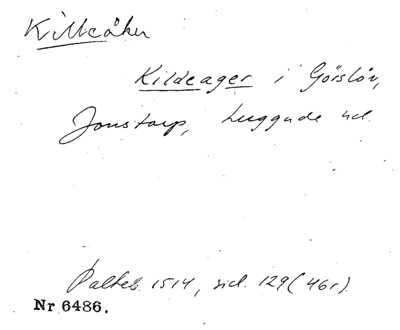 Killeåker
Kildeager i Görslöv,
Jonstorp, Luggude hd.
Palteb. 1514, sid. 129 (46r).
Nr 6486.